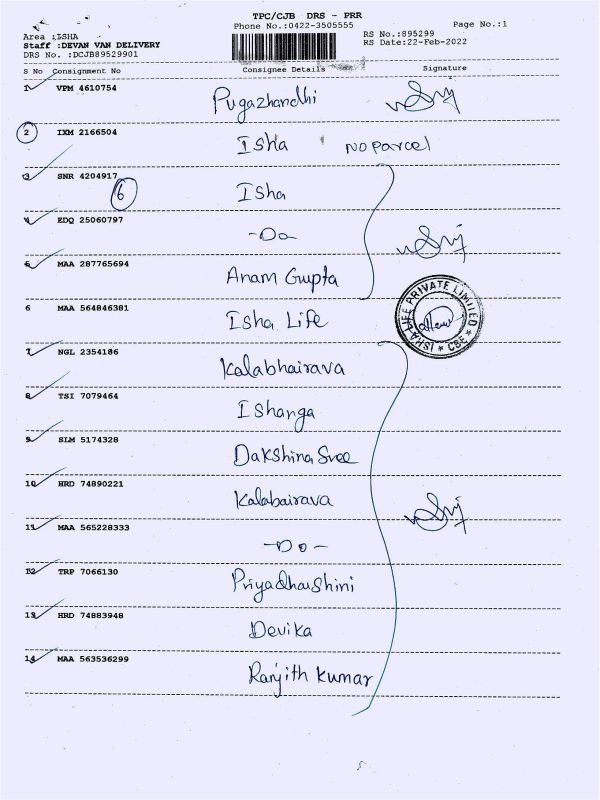 TPC/CJB DRS - PRR
Phone No.:0422-3505555
Page No.:1
Area :ISHA
Staff :DEVAN VAN DELIVERY
DRS No. :DCJB89529901
RS No.:895299
RS Date:22-Feb-2022
S No Consignment No Consignee Details Signature
1 VPM 4610754 Pugazhandhi
2 IXM 2166504 Isha No parcel
3 SNR 4204917 Isha
6
4 EDQ 25060797 -Do-
5 MAA 287765694 Anam Gupta
6 MAA 564846381 Isha Life
ISHA LIFE PRIVATE LIMITED * CBE *
7 NGL 2354186 Kalabhairava
8 TSI 7079464 Ishanga
9 SLM 5174328 Dakshina Sree
10 HRD 74890221 Kalabairava
11 MAA 565228333 -Do-
12 TRP 7066130 Priyadharshini
13 HRD 74883948 Devika
14 MAA 563536299 Ranjith Kumar